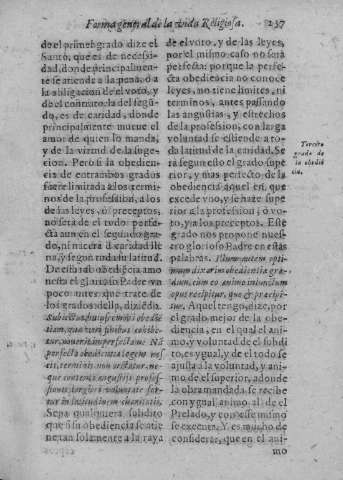 Forma general de la vida Religiosa. 237
de el primer grado dize el
Santo, que es de necesi-
dad, donde principalmen-
te se atiende a la pena, ò a
la obligacion de el voto, y
de el contrato. la del segũ-
do, es de caridad, donde
principalmente mueve el
amor de quien lo manda,
y de la virtud de la sugecion.
Pero si la obediencia
de entrambos grados
fuere limitada à los terminos
de la profession, a los
de las leyes, ò preceptos, no
sera de el todo perfecta
aun en el segundo grado,
ni nacerà de caridad llena,
y segun toda su latitud.
De esta tal obediencia amonesta
el glorioso Padre vn
poco antes que trate de
los grados della, diziẽdo.
Perfecta obedientia legem nescit,
terminis non arctatur, neque
contenta angustijs professionis,
largiori voluntate fertur
in latitudinem charitatis.
Sepa qualquiera subdito
que si su obediencia se atiene
tan solamente a la raya
de el voto, y de las leyes,
por el mismo caso no serà
perfecta: porque la perfecta
obediencia no conoce
leyes, no tiene limites, ni
terminos, antes passando
las angustias, y estrechos
de la profession, con larga
voluntad se estiende a toda
latitud de la caridad. Serà
segun esto el grado superior,
y mas perfecto, de la
obediencia aquel en que
excede uno, y se haze superior
a la profession, ò voto,
y a los preceptos. Este
grado nos propone nuestro
glorioso Padre en estas
palabras.
Aquel tengo, dize, por
el grado mejor de la obediencia,
en el qual el animo,
y voluntad de el subdito,
es ygual, y de el todo se
ajusta a la voluntad, y animo
de el superior, adonde
la obra mandada se recibe
con ygual animo al de el
Prelado, y con esse mismo
se executa. Y es mucho de
considerar, que en el ani-
mo
Tercero
grado de
la obediẽ
cia.